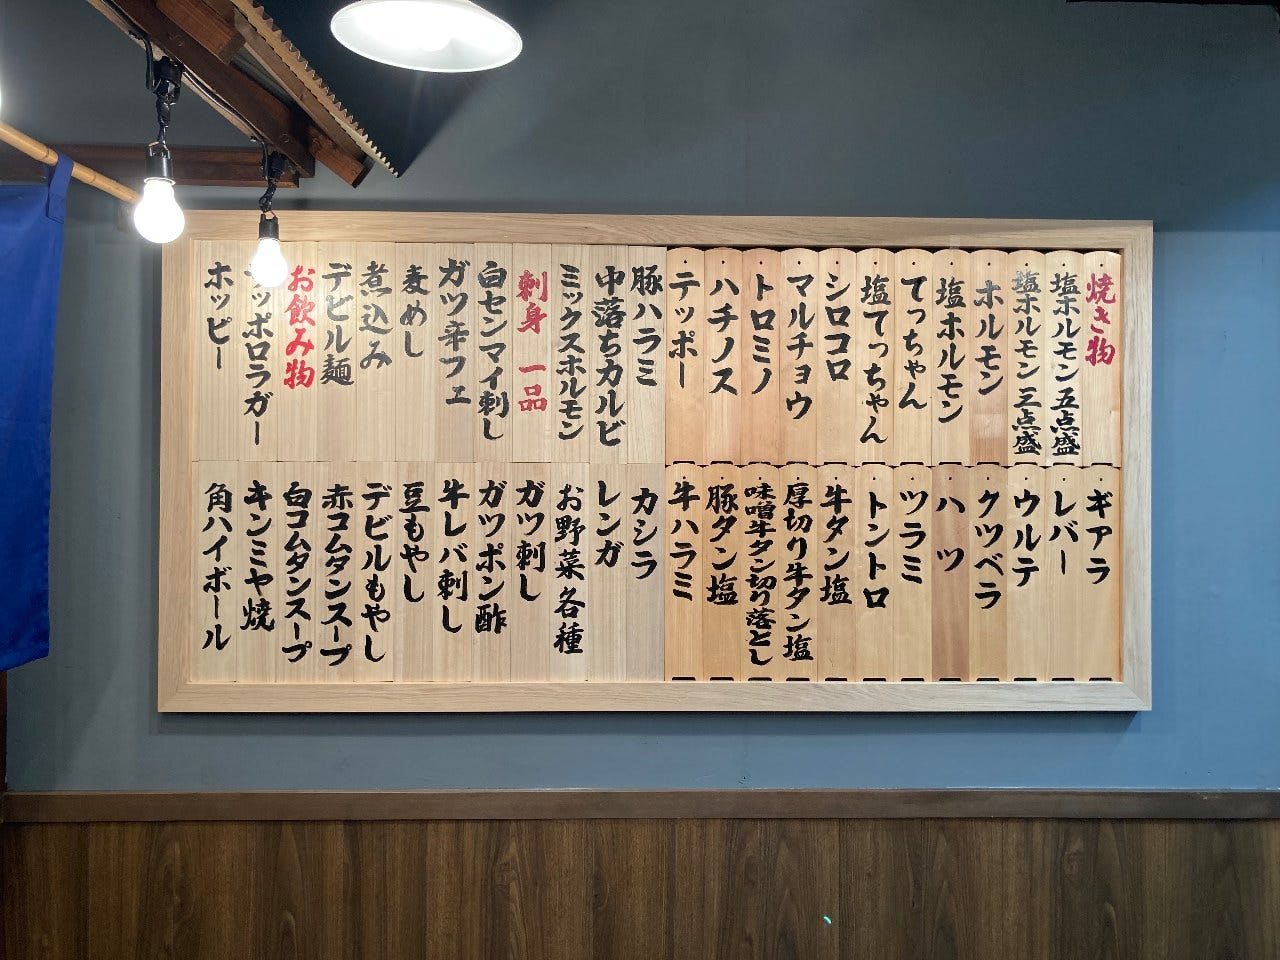 焼き物
塩ホルモン五点盛
塩ホルモン三点盛
ホルモン
塩ホルモン
てっちゃん
塩てっちゃん
シロコロ
マルチョウ
トロミノ
ハチノス
テッポー
豚ハラミ
中落ちカルビ
ミックスホルモン
刺身 一品
白センマイ刺し
ガツ辛フェ
麦めし
煮込み
デビル麺
お飲み物
ッポロラガー
ホッピー
ギアラ
レバー
ウルテ
クツベラ
ハツ
ツラミ
トントロ
牛タン塩
厚切り牛タン塩
味噌牛タン切り落とし
豚タン塩
牛ハラミ
カシラ
レンガ
お野菜各種
ガツ刺し
ガツポン酢
牛レバ刺し
豆もやし
デビルもやし
赤コムタンスープ
白コムタンスープ
キンミヤ焼
角ハイボール